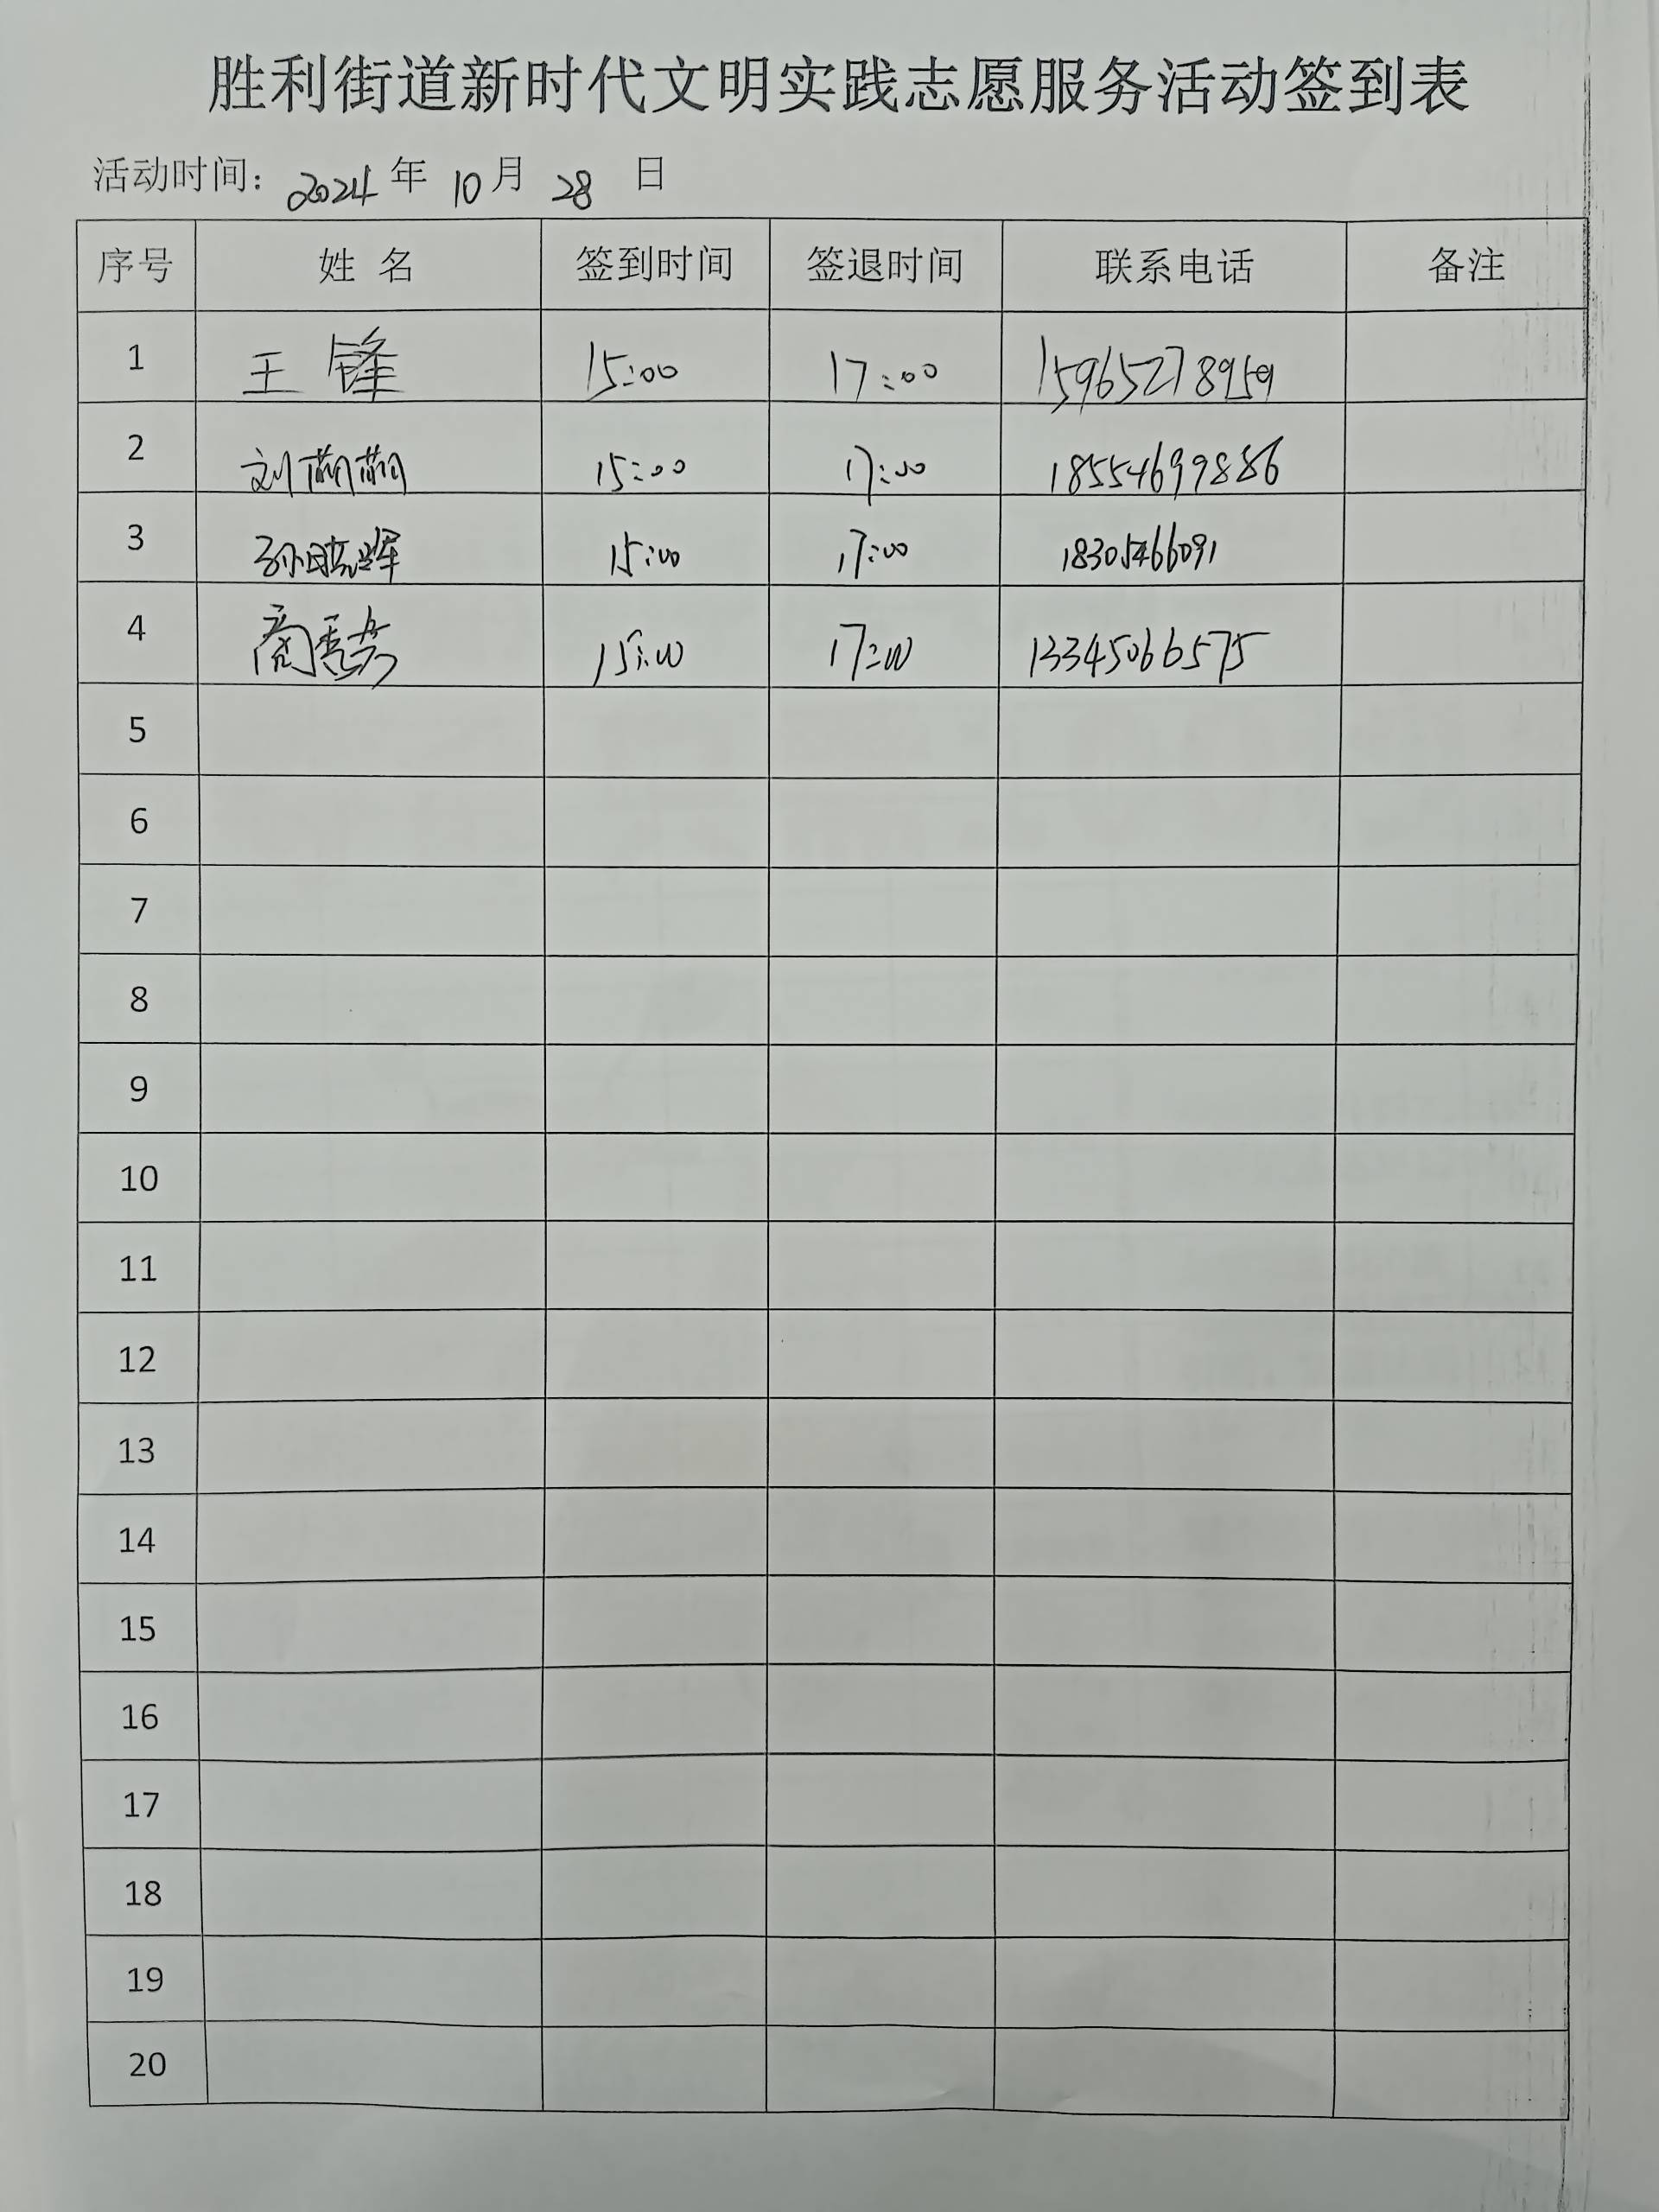 胜利街道新时代文明实践志愿服务活动签到表
活动时间：2024 年 10 月 28 日
序号 姓 名 签到时间 签退时间 联系电话 备注
1 王 锋 15:00 17:00 15965278959
2 刘萌萌 15:00 17:00 18554699886
3 孙晓辉 15:00 17:00 18305466091
4 商秀芳 15:00 17:00 13345066575
5
6
7
8
9
10
11
12
13
14
15
16
17
18
19
20